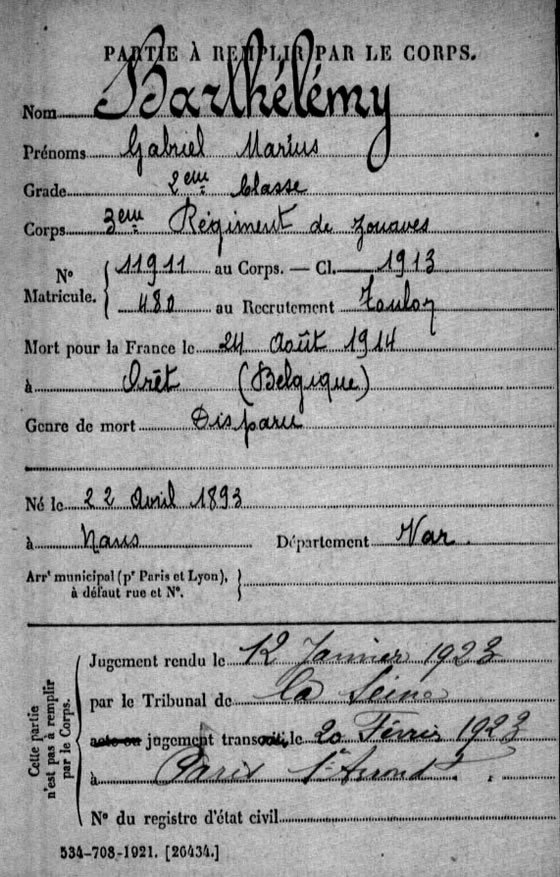 PARTIE À REMPLIR PAR LE CORPS.
Nom Barthélémy
Prénoms Gabriel Marius
Grade 2eme Classe
Corps 3eme Régiment de Zouaves
N° Matricule. { 11911 au Corps. — Cl. 1913
480 au Recrutement Toulon
Mort pour la France le 24 Août 1914
à Orêt (Belgique)
Genre de mort Disparu
Né le 22 Avril 1893
à Nans Département Var.
Arrt municipal (pr Paris et Lyon), }
à défaut rue et N°.
Cette partie n'est pas à remplir par le Corps. {
Jugement rendu le 12 Janvier 1923
par le Tribunal de la Seine
acte ou jugement transcrit le 20 Février 1923
à Paris Arrondt.
N° du registre d'état civil
534-708-1921. [26434.]